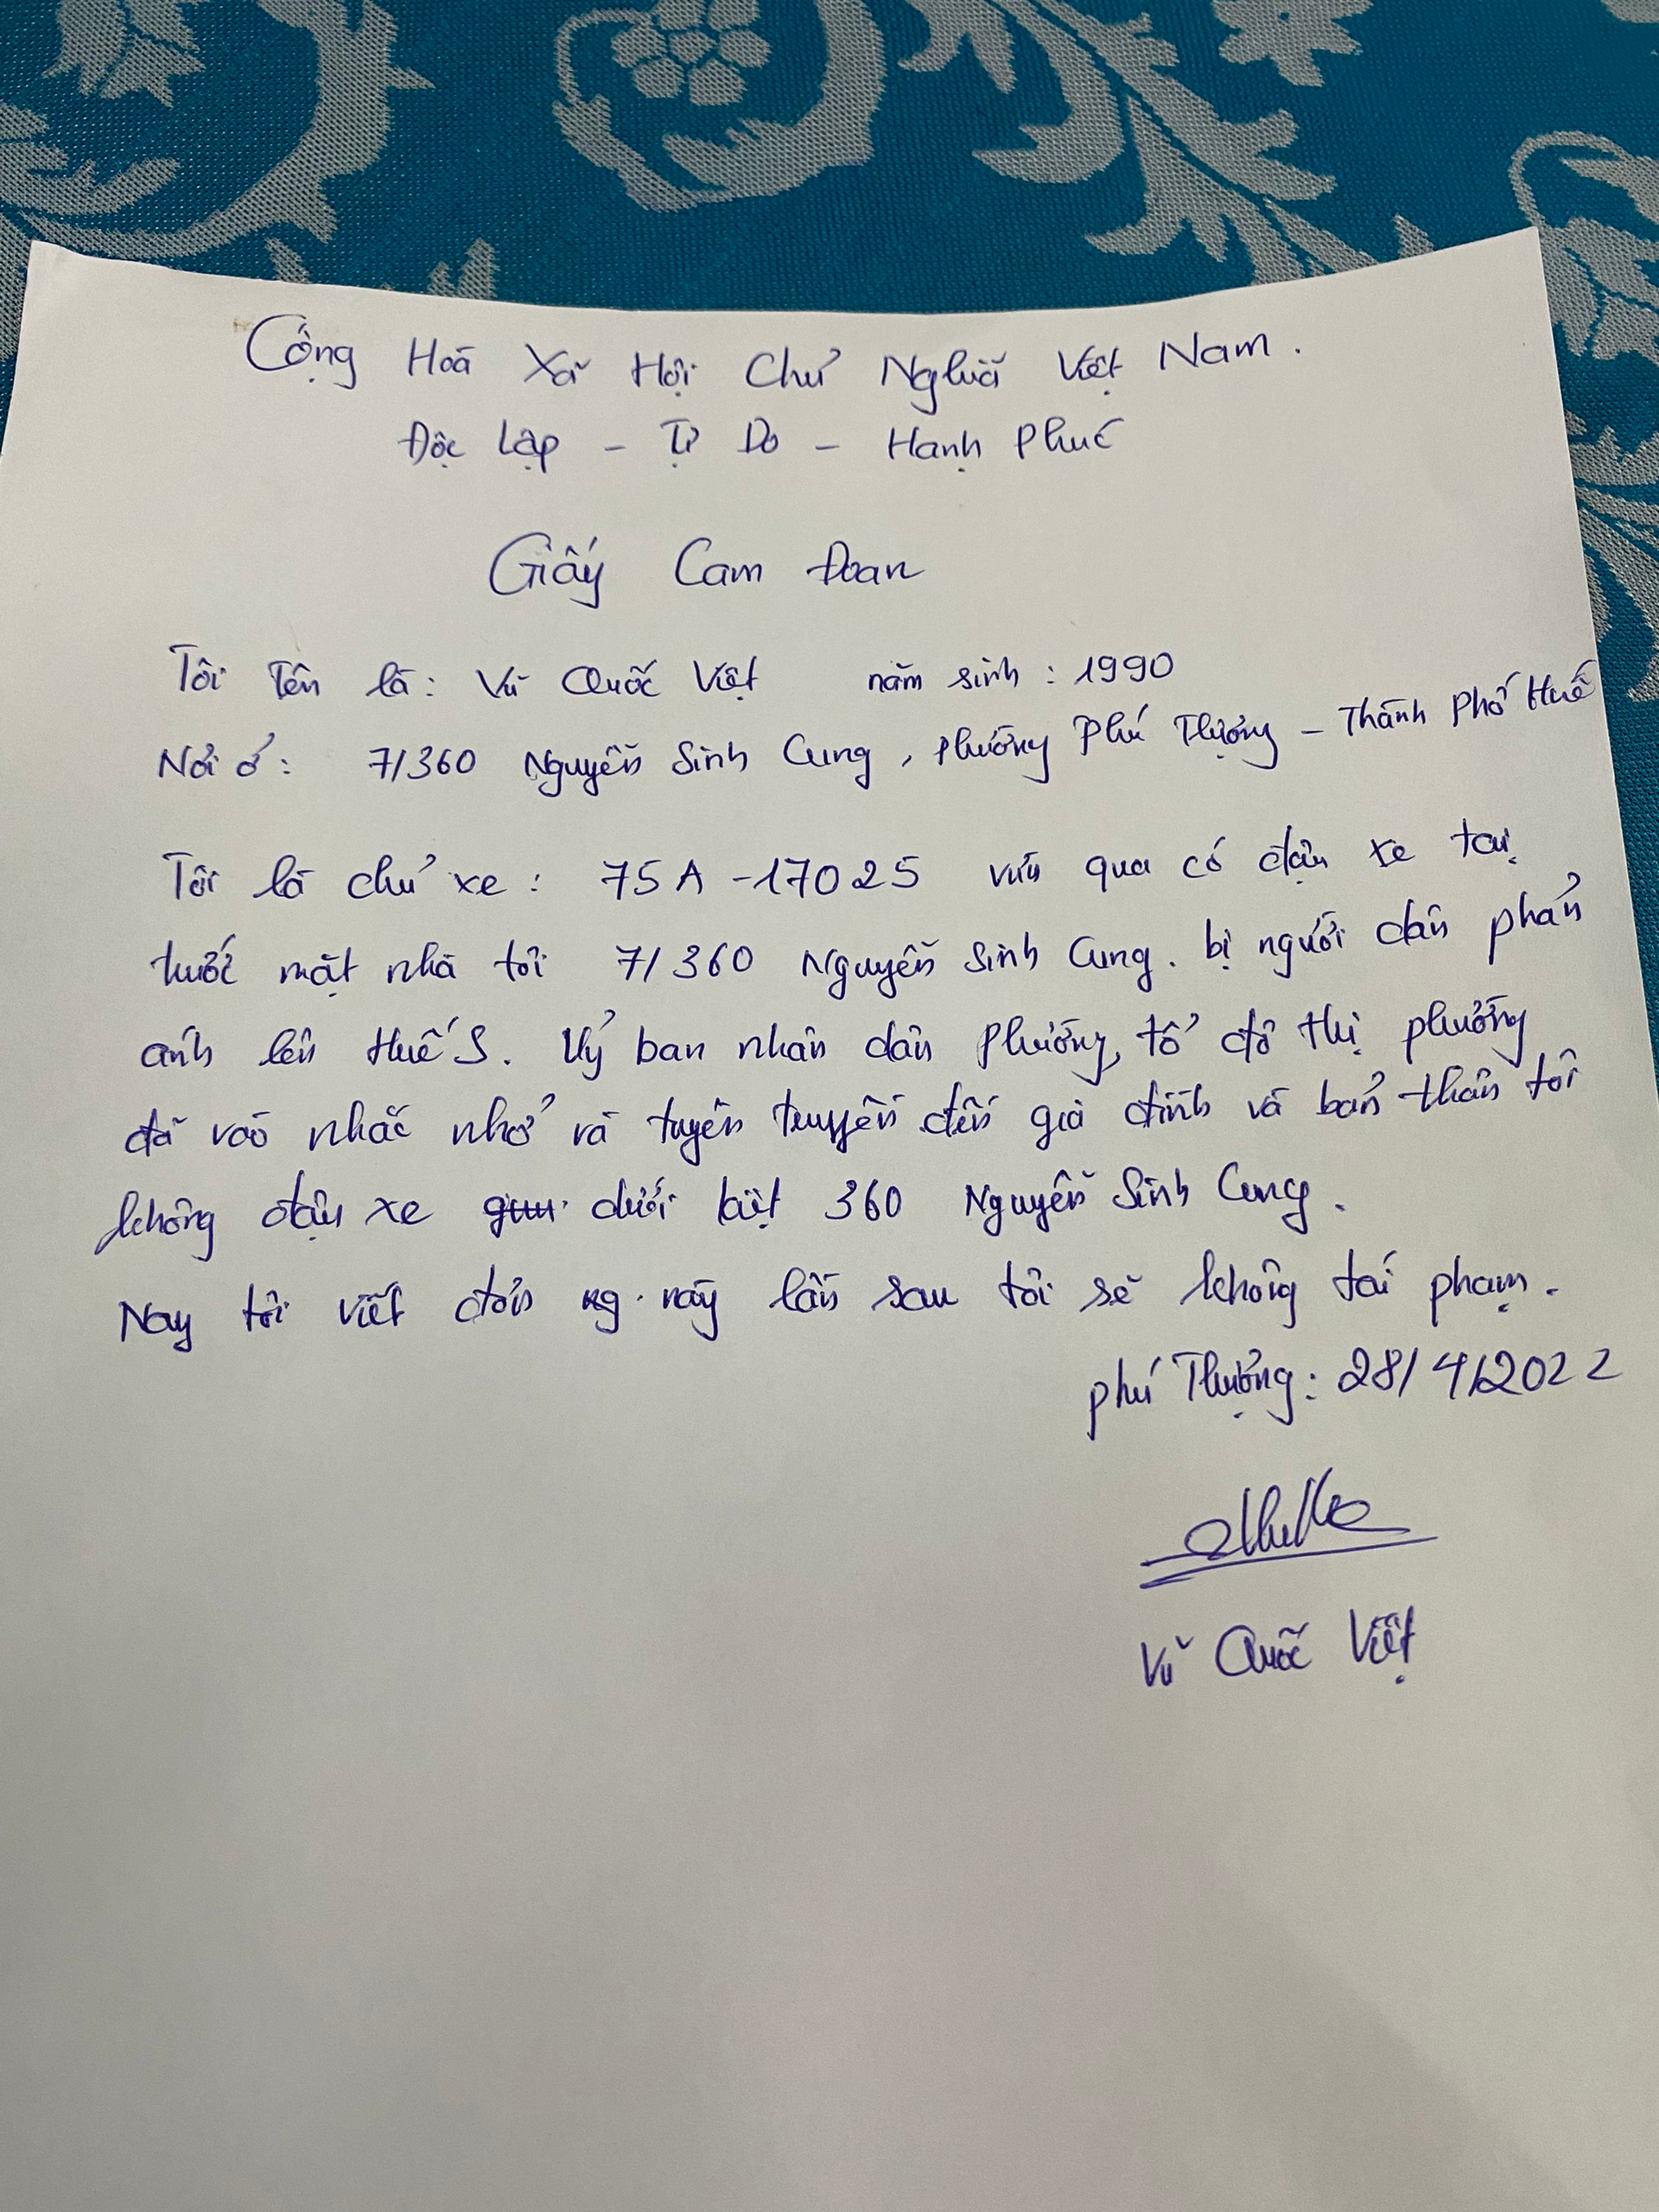 Cộng Hoà Xã Hội Chủ Nghĩa Việt Nam.
Độc Lập - Tự Do - Hạnh Phúc
Giấy Cam Đoan
Tôi Tên là: Vũ Quốc Việt năm sinh: 1990
Nơi ở: 7/360 Nguyễn Sinh Cung, phường Phú Thượng - Thành Phố Huế
Tôi là chủ xe: 75A-17025 vừa qua có đậu xe tại
trước mặt nhà tôi 7/360 Nguyễn Sinh Cung. bị người dân phản
ánh lên Huế S. Uỷ ban nhân dân Phường, tổ đô thị phường
đã vào nhắc nhở và tuyên truyền đến gia đình và bản thân tôi
không đậu xe dưới kiệt 360 Nguyễn Sinh Cung.
Nay tôi viết đơn này lần sau tôi sẽ không tái phạm.
phú Thượng: 28/4/2022
Vũ Quốc Việt